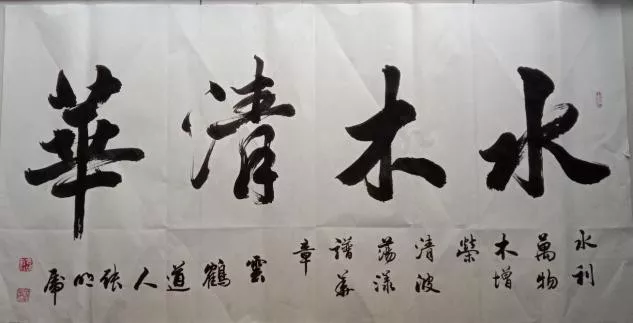 水木清華
水利
萬物
木增
榮
清波
蕩漾
譜華
章
雲鶴道人張明虎